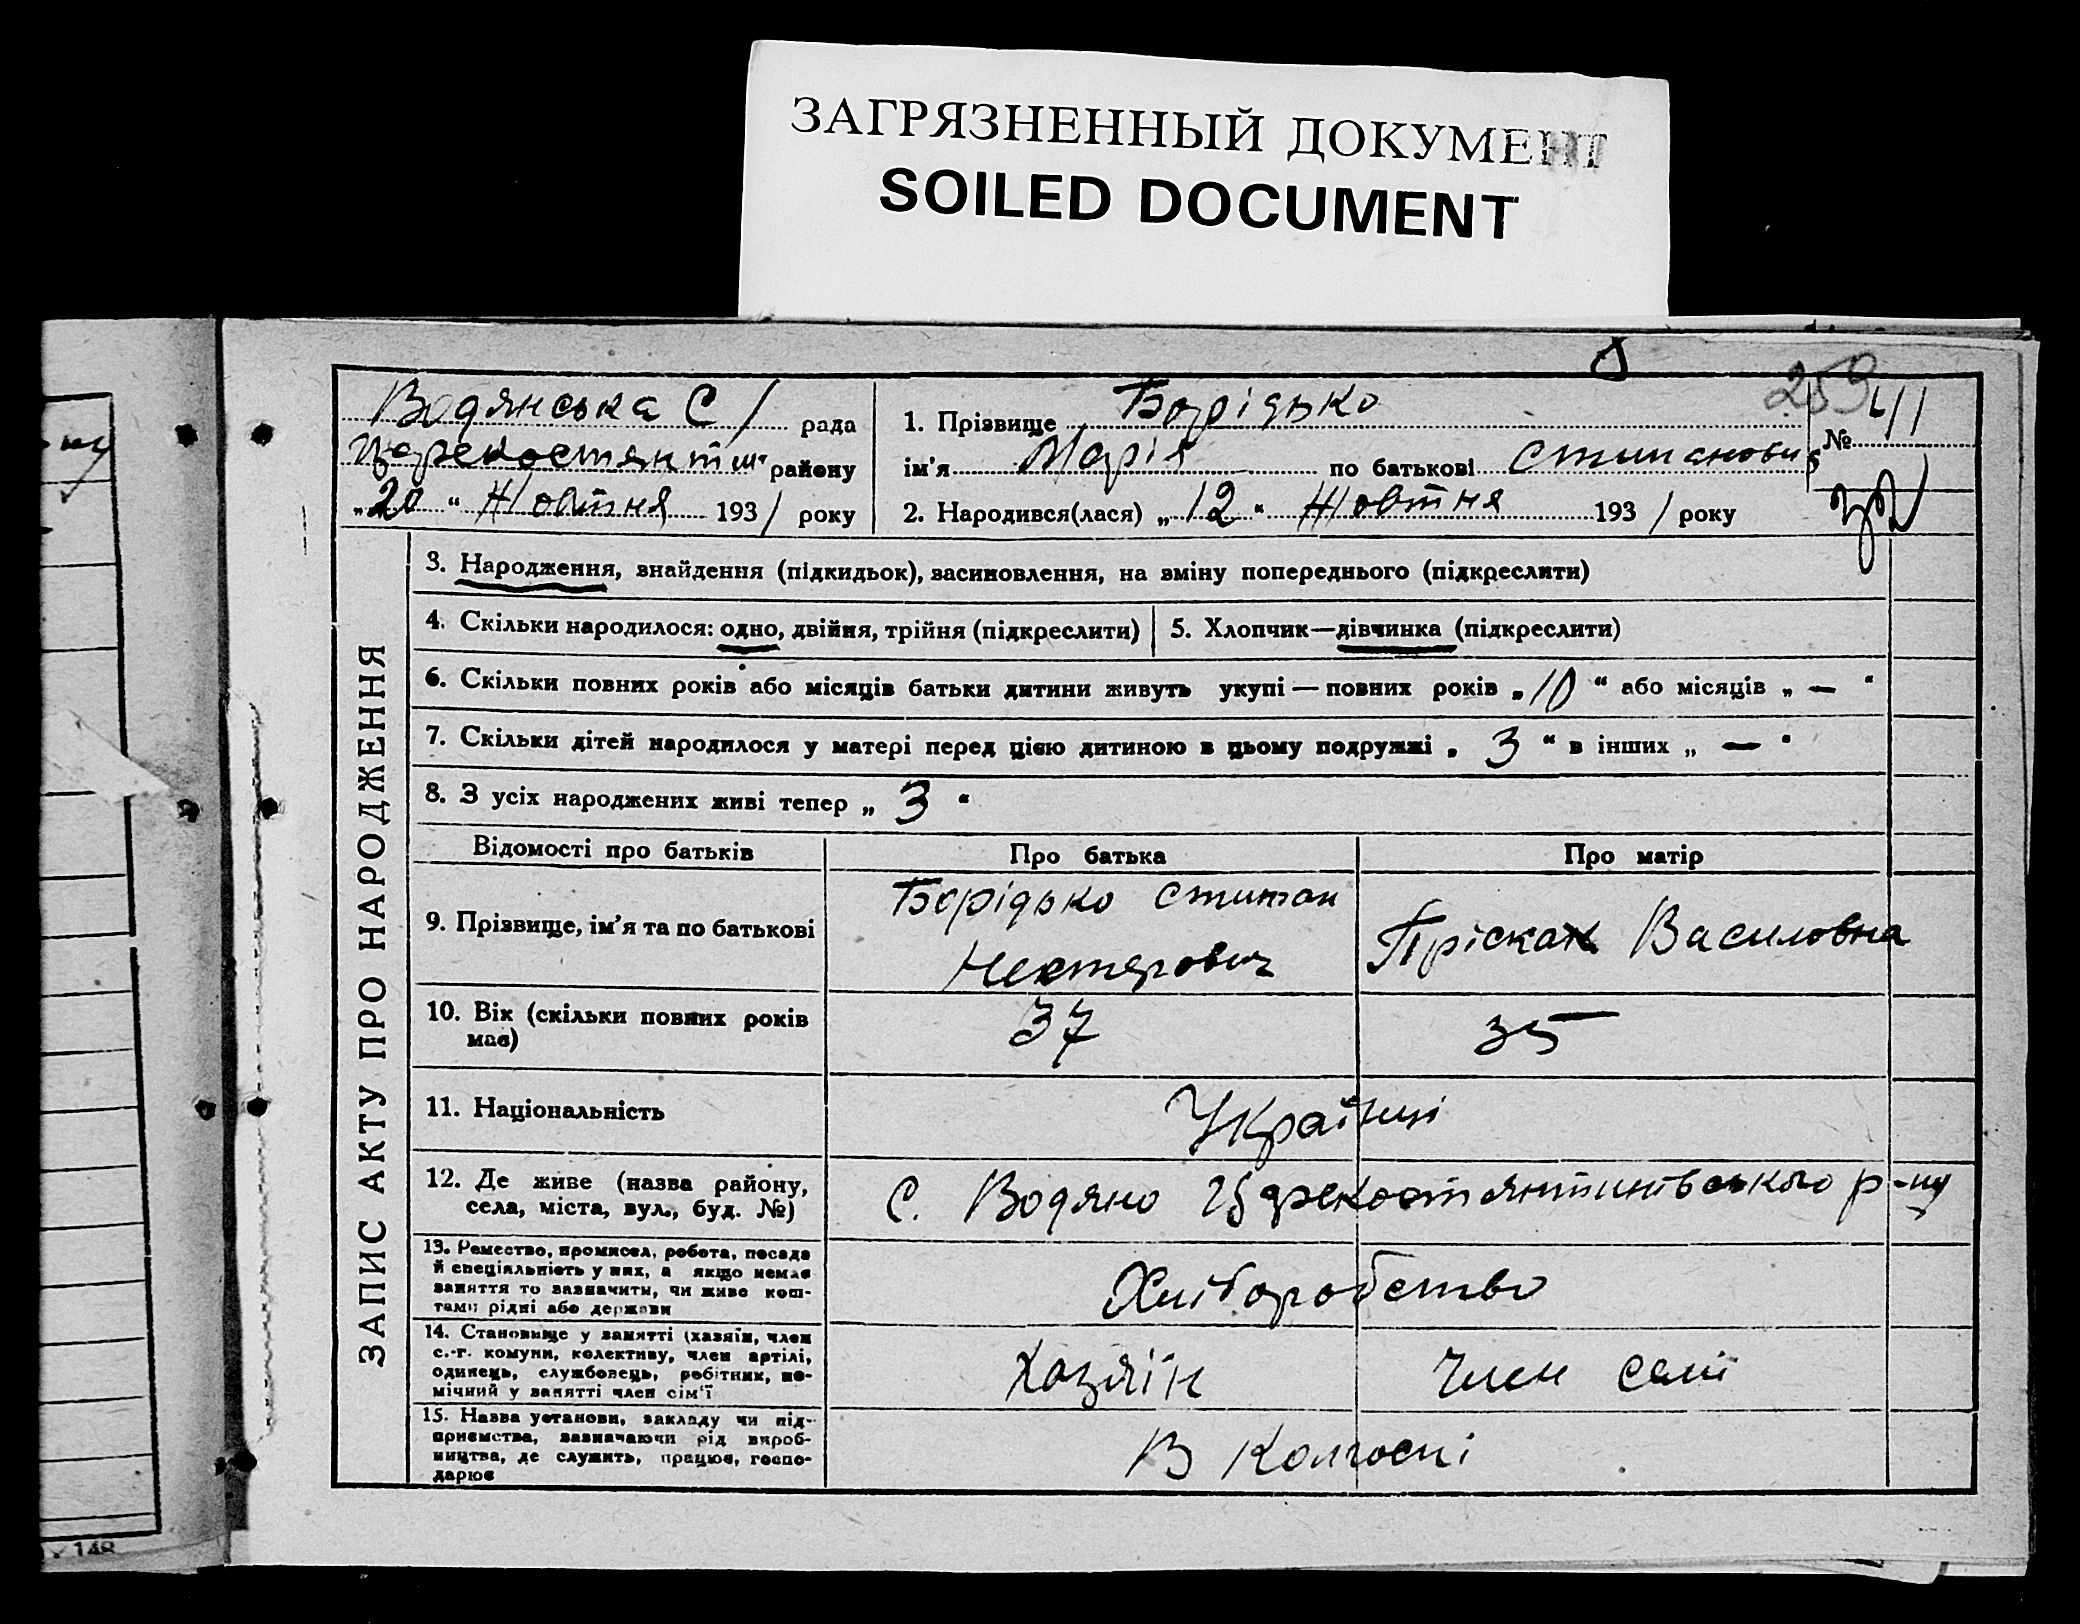 ЗАГРЯЗНЕННЫЙ ДОКУМЕНТ
SOILED DOCUMENT
259
Водянська С/ рада
района
„20“ Жовтня 193/ року
1. Прізвище Борідько
ім'я Марія по батькові
2. Народився(лася) „12“ Жовтня 193/ року
№
ЗАПИС АКТУ ПРО НАРОДЖЕННЯ
3. Народження, знайдення (підкидьок), засиновлення, на зміну попереднього (підкреслити)
4. Скільки народилося: одно, двійня, трійня (підкреслити)
5. Хлопчик—дівчинка (підкреслити)
6. Скільки повних років або місяців батьки дитини живуть укупі — повних років „10“ або місяців „—“
7. Скільки дітей народилося у матері перед цією дитиною в цьому подружжі „3“ в інших „—“
8. З усіх народжених живі тепер „3“
Відомості про батьків
Про батька
Про матір
9. Прізвище, ім'я та по батькові
Борідько
Пріска Василовна
10. Вік (скільки повних років
має)
37
35
11. Національність
Українці
12. Де живе (назва району,
села, міста, вул., буд. №)
С. Водяно р-ну
13. Ремество, промисел, робота, посада
й спеціяльність у них, а якщо немає
заняття то зазначити, чи живе кош-
тами рідні або держави
Хліборобство
14. Становище у занятті (хазяїн, член
с.-г. комуни, колективу, член артілі,
одинець, службовець, робітник, по-
мічний у занятті член сім'ї
Хазяїн
Член семї
15. Назва установи, закладу чи під-
приємства, зазначаючи рід вироб-
ництва, де служить, працює, госпо-
дарює
В колгоспі
148